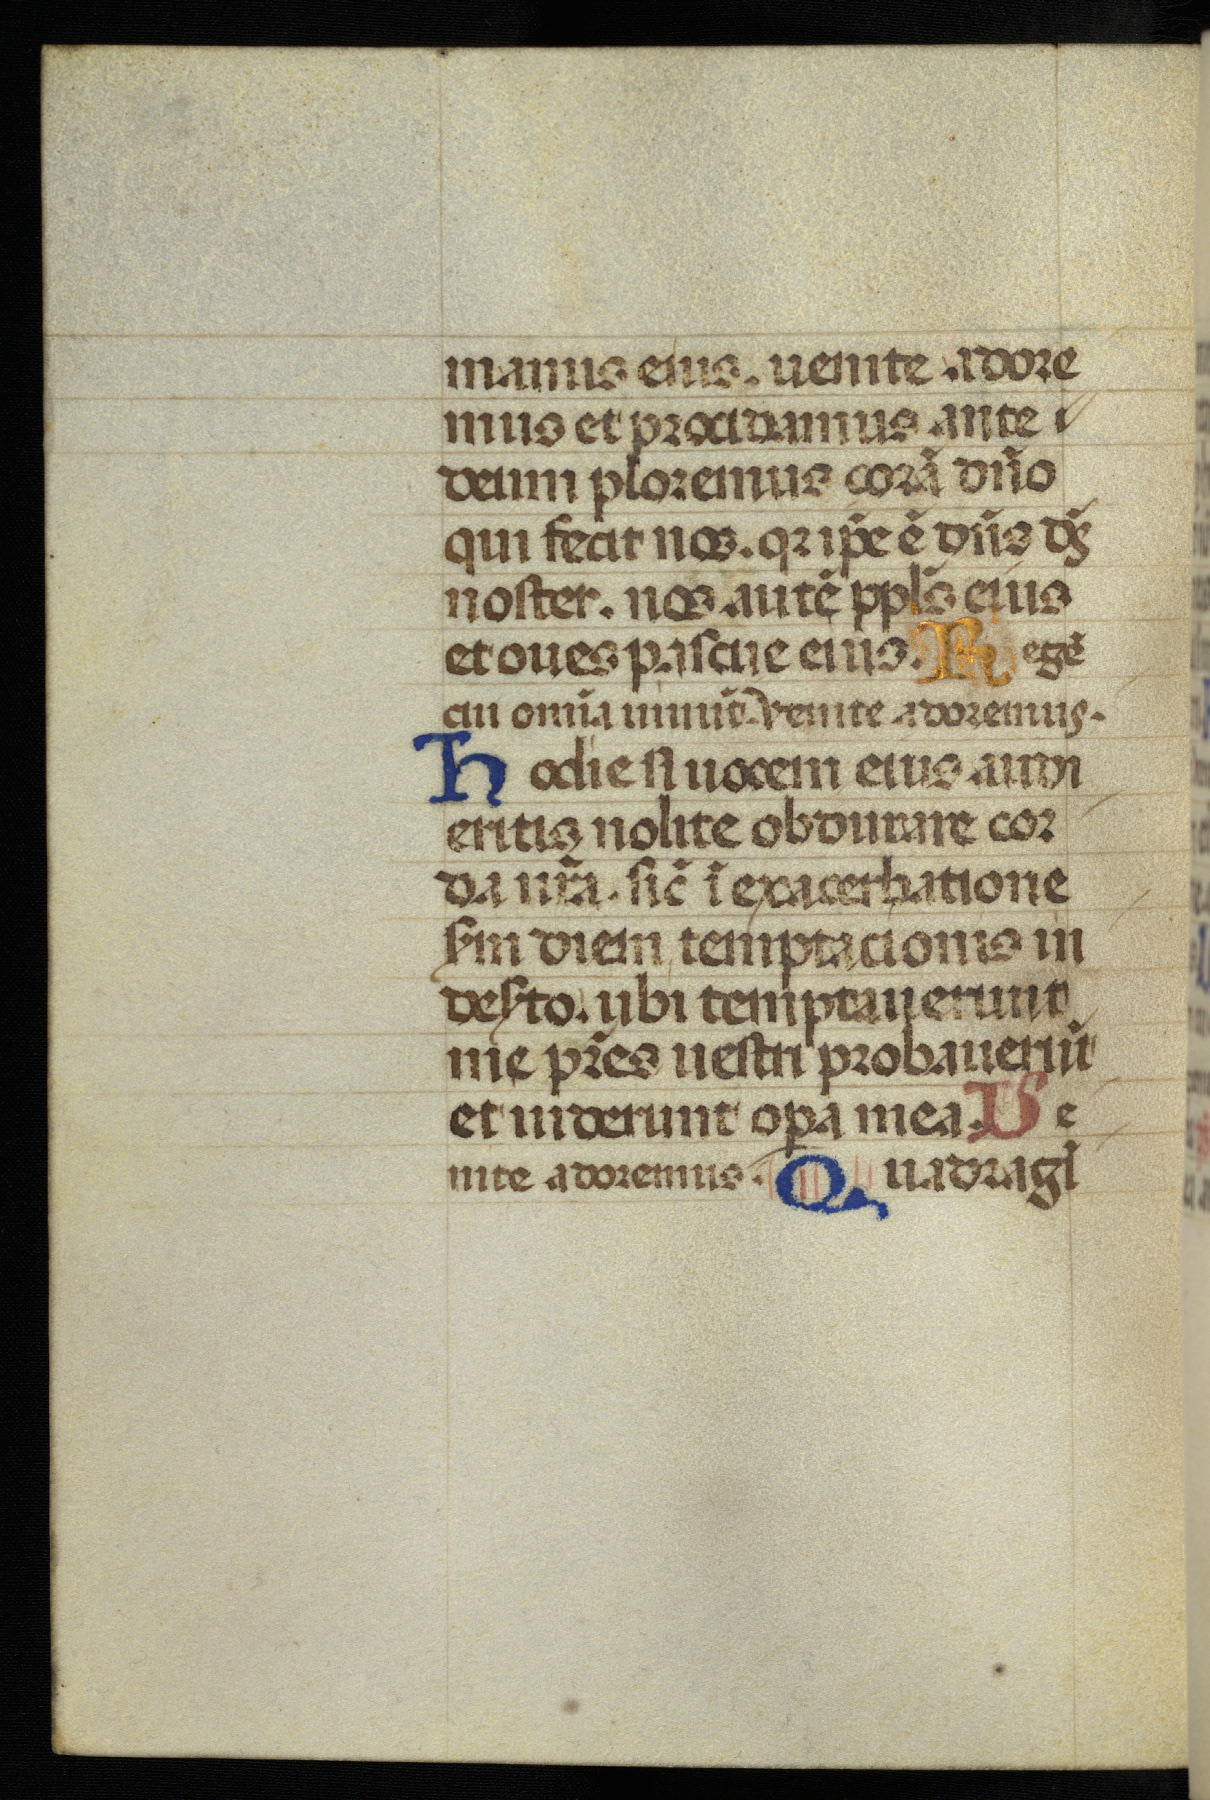 manus eius. uenite adore
mus et procidamus ante
deum ploremus corã dño
qui fecit nos. qz ip̃e ẽ dñs dẽ
noster. nos autẽ ppl̃s eius
et oues pascue eius. Regẽ
cui omĩa uiuũt. Venite adoremus.
Hodie si uocem eius audi
eritis nolite obdurare cor
da ur̃a. sic̃ ĩ exacerbatione
sʒm diem temptacionis in
deſto. ubi temptauerunt
me pr̃es uestri probauerũt
et uiderunt oꝑa mea. Ve
nite adoremus. Quadragĩ